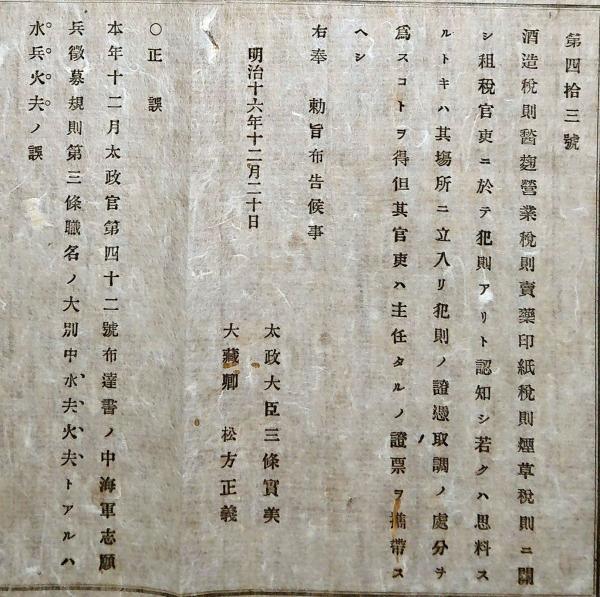 第四拾三號
酒造税則醫麹營業税則賣藥印紙税則煙草税則ニ關
シ租税官吏ニ於テ犯則アリト認知シ若クハ思料ス
ルトキハ其塲所ニ立入リ犯則ノ證憑取調ノ處分ヲ
爲スコトヲ得但其官吏ハ主任タルノ證票ヲ携帶ス
ヘシ
右奉　勅旨布告候事
明治十六年十二月二十日
太政大臣三條實美
大藏卿　松方正義
○正　誤
本年十二月太政官第四十二號布達書ノ中海軍志願
兵徴募規則第三條職名ノ大別中水夫火夫トアルハ
水兵火夫ノ誤